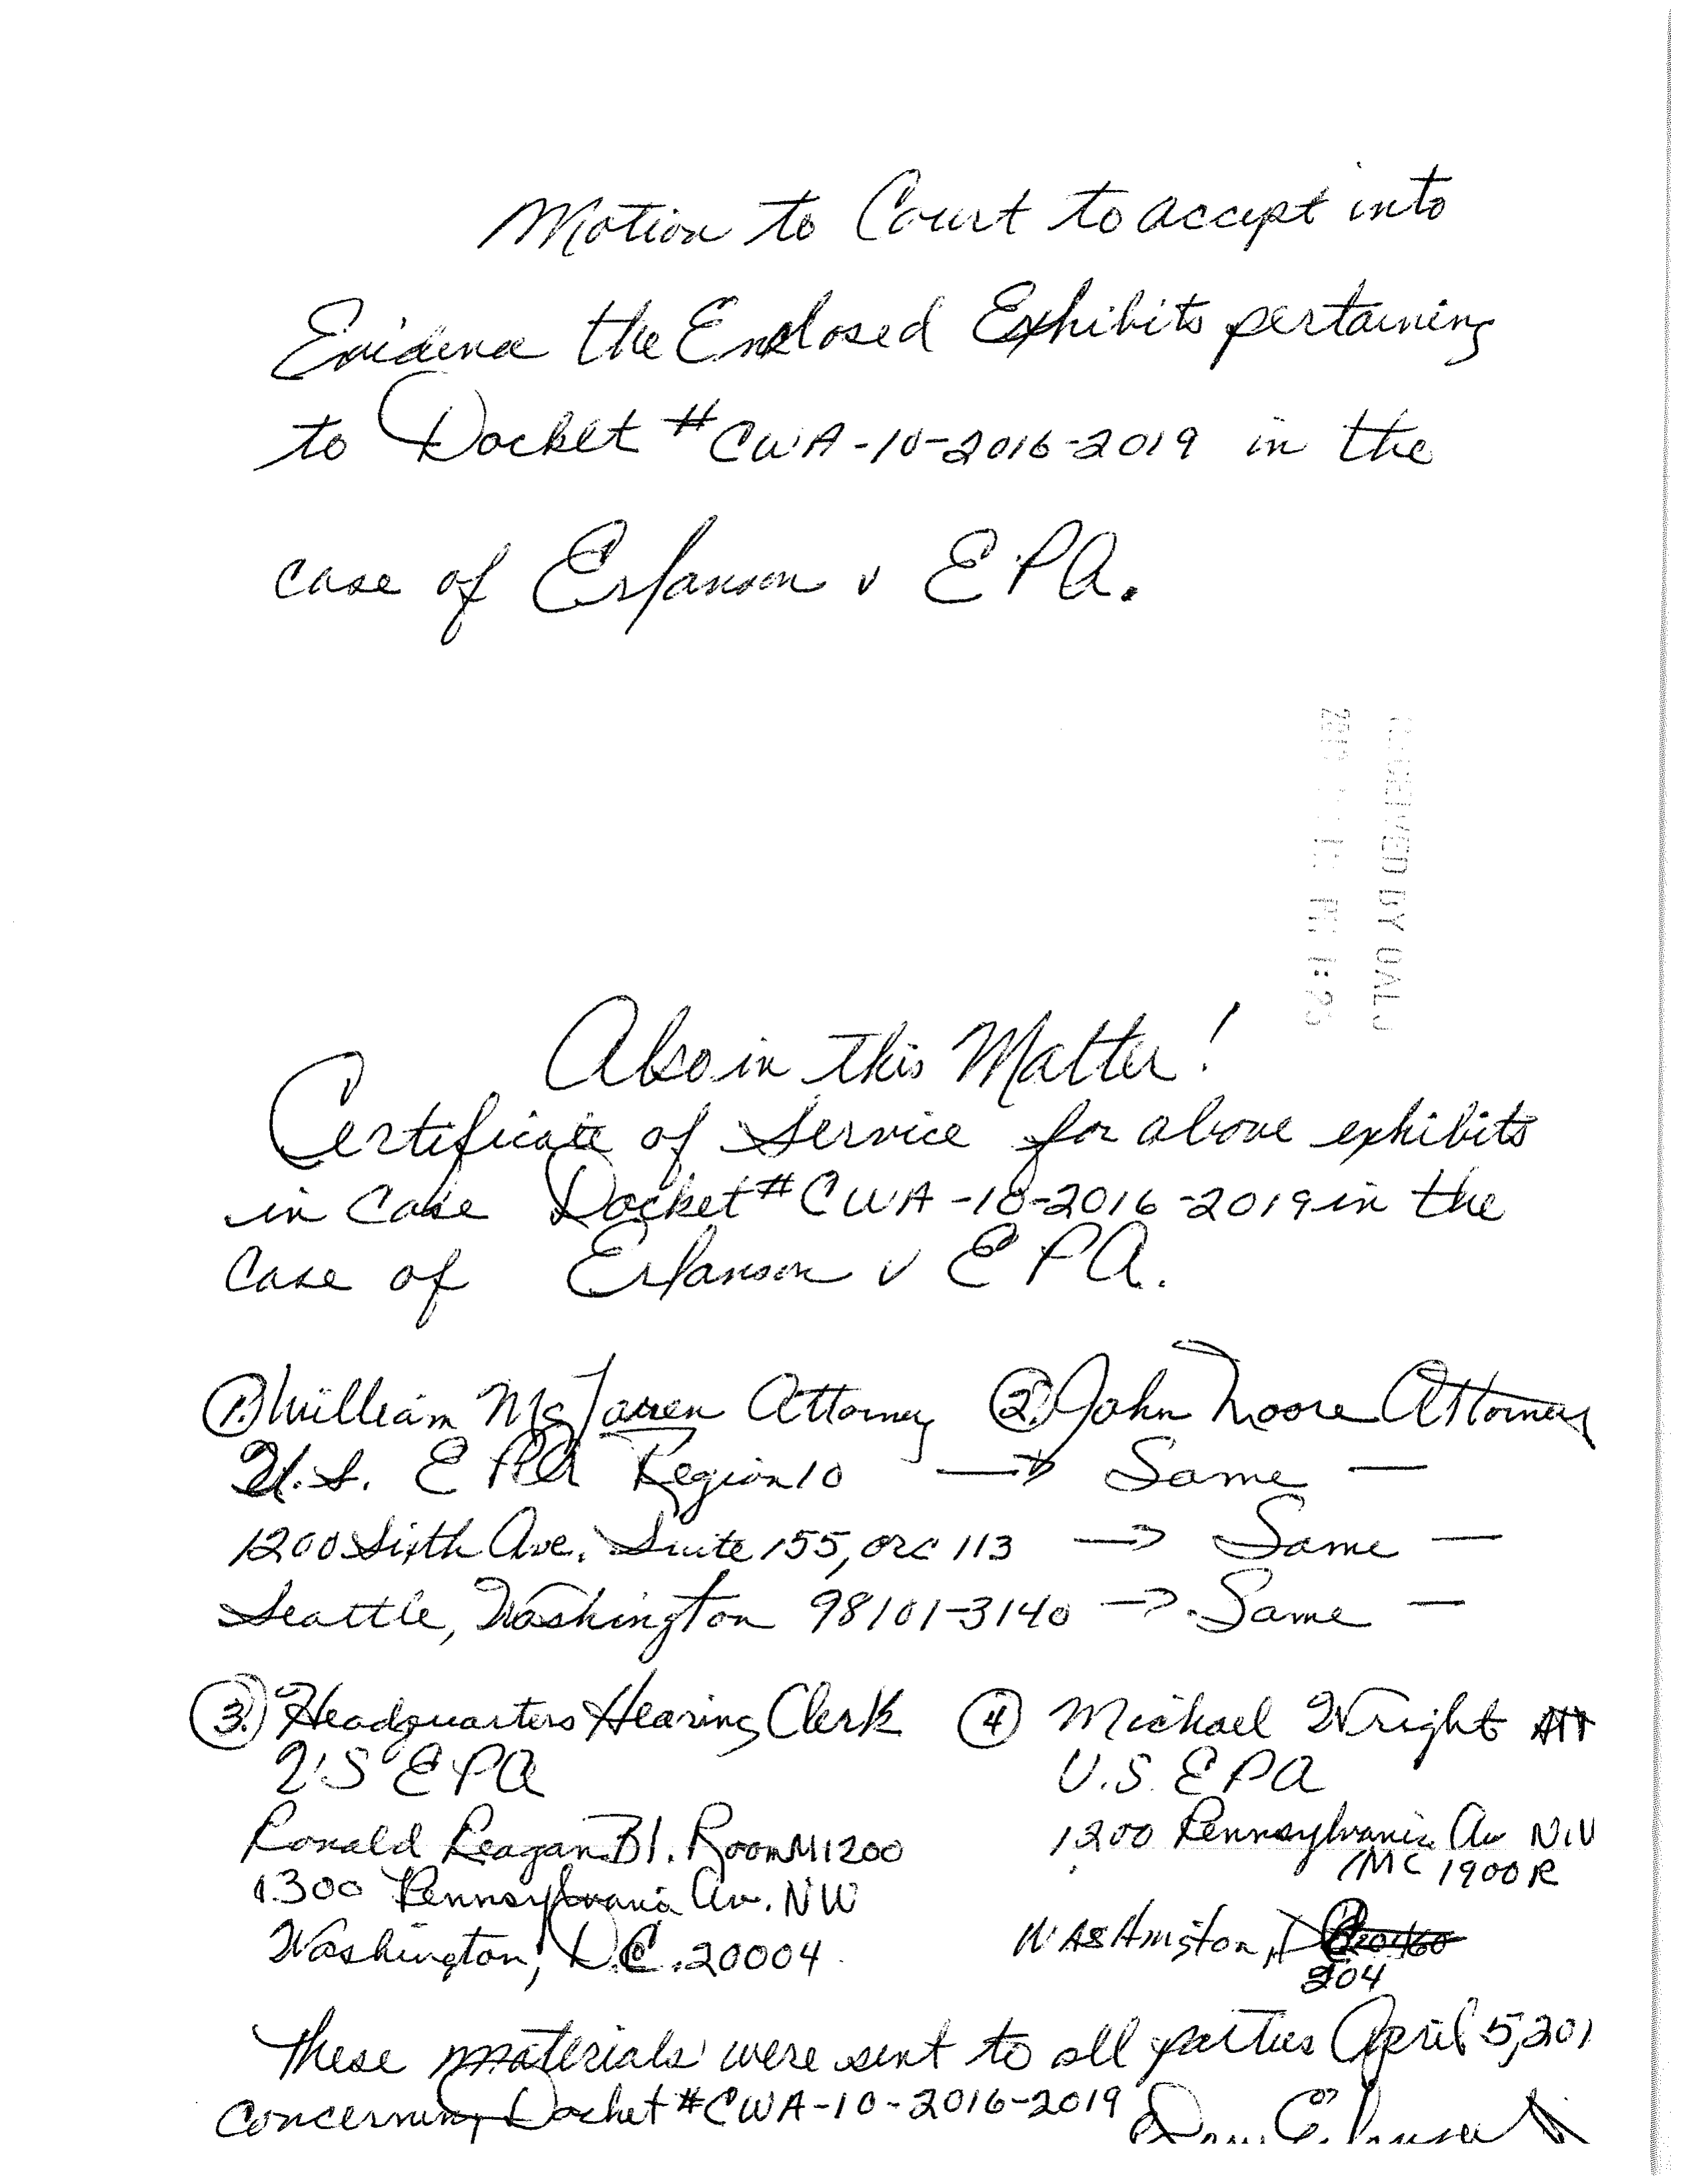 Motion to Court to accept into
Evidence the Enclosed Exhibits pertaining
to Docket # CWA-10-2016-2019 in the
case of Erlanson v EPA.
RECEIVED BY OALJ
PM 1:23
Also in this Matter!
Certificate of Service for above exhibits
in Case Docket # CWA-10-2016-2019 in the
Case of Erlanson v EPA.
1. William McLaren Attorney
U.S. EPA Region 10
1200 Sixth Ave. Suite 155, ORC 113
Seattle, Washington 98101-3140
2. John Moore Attorney
→ Same —
→ Same —
→ Same —
3. Headquarters Hearing Clerk
US EPA
Ronald Reagan Bl. Room M1200
1300 Pennsylvania Av. NW
Washington, D.C. 20004
4 Michael Wright Att
U.S. EPA
1200 Pennsylvania Av NW
/MC 1900R
Washington, D
204
These materials were sent to all parties April 5, 201
Concerning Docket # CWA-10-2016-2019